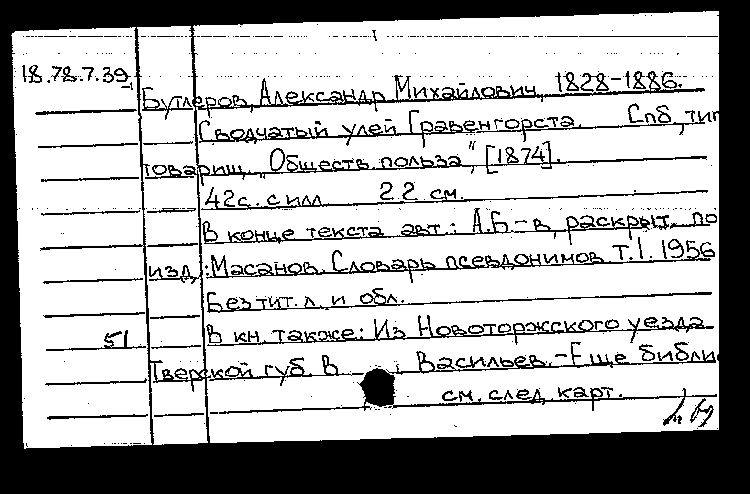 18.78.7.39
Бутлеров, Александр Михайлович, 1828-1886.
Сводчатый улей Гравенгорста. Спб, тип
товарищ. "Обществ. польза", [1874].
42с. с илл 22 см.
В конце текста авт.: А.Б.-в, раскрыт. по
изд.: Масанов. Словарь псевдонимов. Т.1. 1956
Без тит. л. и обл.
51 В кн. также: Из Новоторжского уезда
Тверской губ. В Васильев.-Еще библи
см. след. карт.